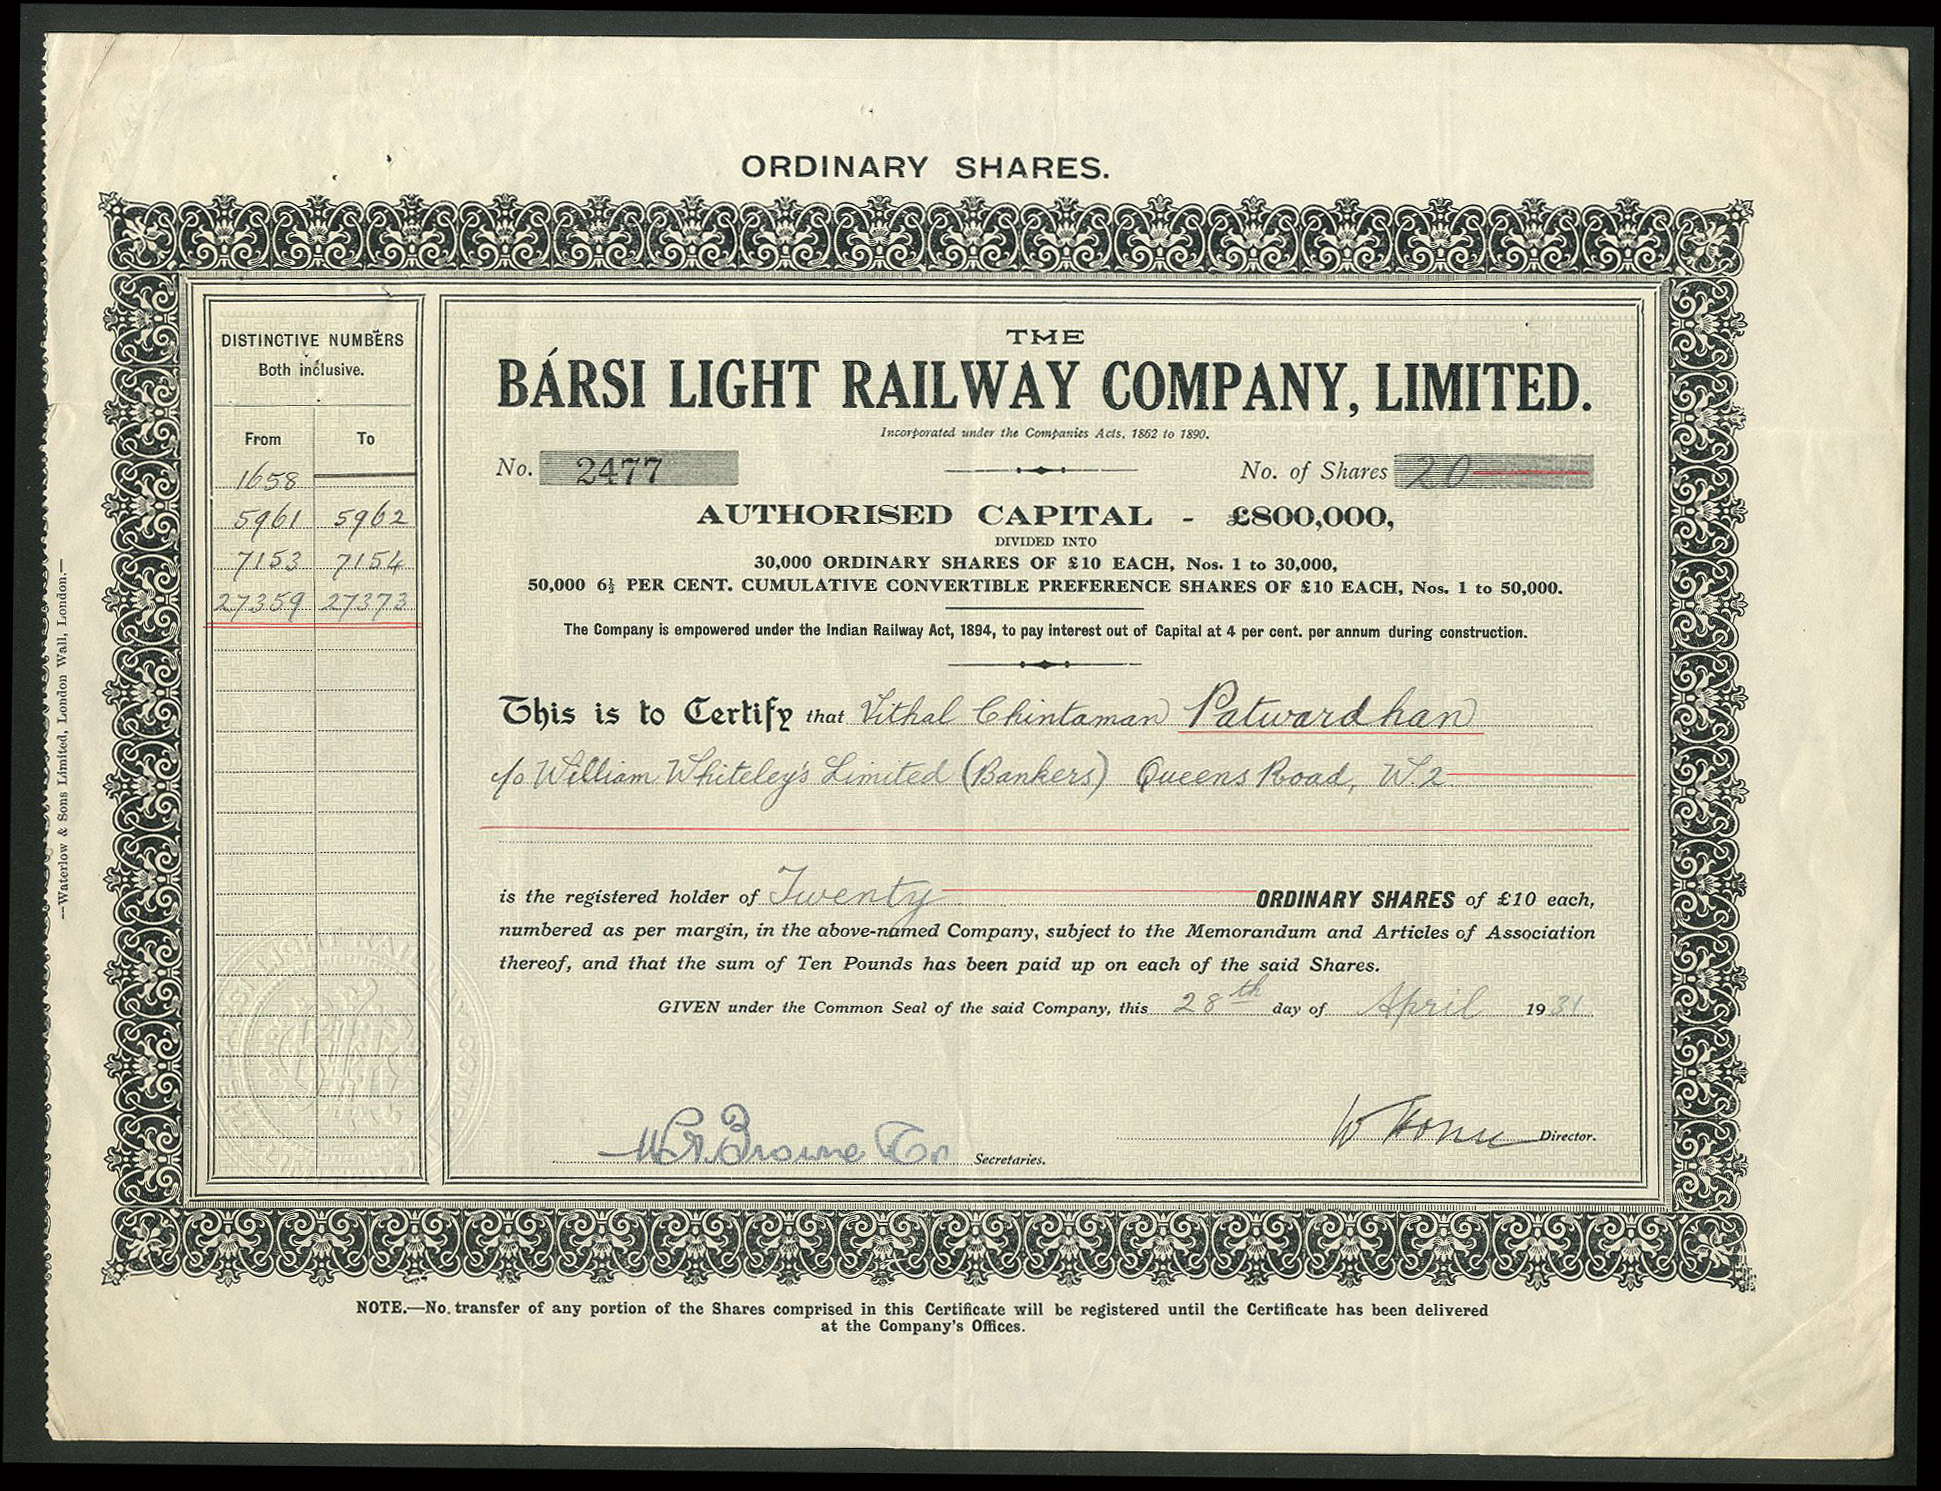 ORDINARY SHARES.
DISTINCTIVE NUMBERS
Both inclusive.
From To
1658
5961 5962
7153 7154
27359 27373
THE
BÁRSI LIGHT RAILWAY COMPANY, LIMITED.
Incorporated under the Companies Acts, 1862 to 1890.
No. 2477 No. of Shares 20
AUTHORISED CAPITAL - £800,000,
DIVIDED INTO
30,000 ORDINARY SHARES OF £10 EACH, Nos. 1 to 30,000,
50,000 6½ PER CENT. CUMULATIVE CONVERTIBLE PREFERENCE SHARES OF £10 EACH, Nos. 1 to 50,000.
The Company is empowered under the Indian Railway Act, 1894, to pay interest out of Capital at 4 per cent. per annum during construction.
This is to Certify that Vithal Chintaman Patwardhan
c/o William Whiteley's Limited (Bankers) Queens Road, W.2
is the registered holder of Twenty ORDINARY SHARES of £10 each,
numbered as per margin, in the above-named Company, subject to the Memorandum and Articles of Association
thereof, and that the sum of Ten Pounds has been paid up on each of the said Shares.
GIVEN under the Common Seal of the said Company, this 28th day of April 1931
Director.
Secretaries.
NOTE.—No transfer of any portion of the Shares comprised in this Certificate will be registered until the Certificate has been delivered
at the Company's Offices.
—Waterlow & Sons Limited, London Wall, London.—